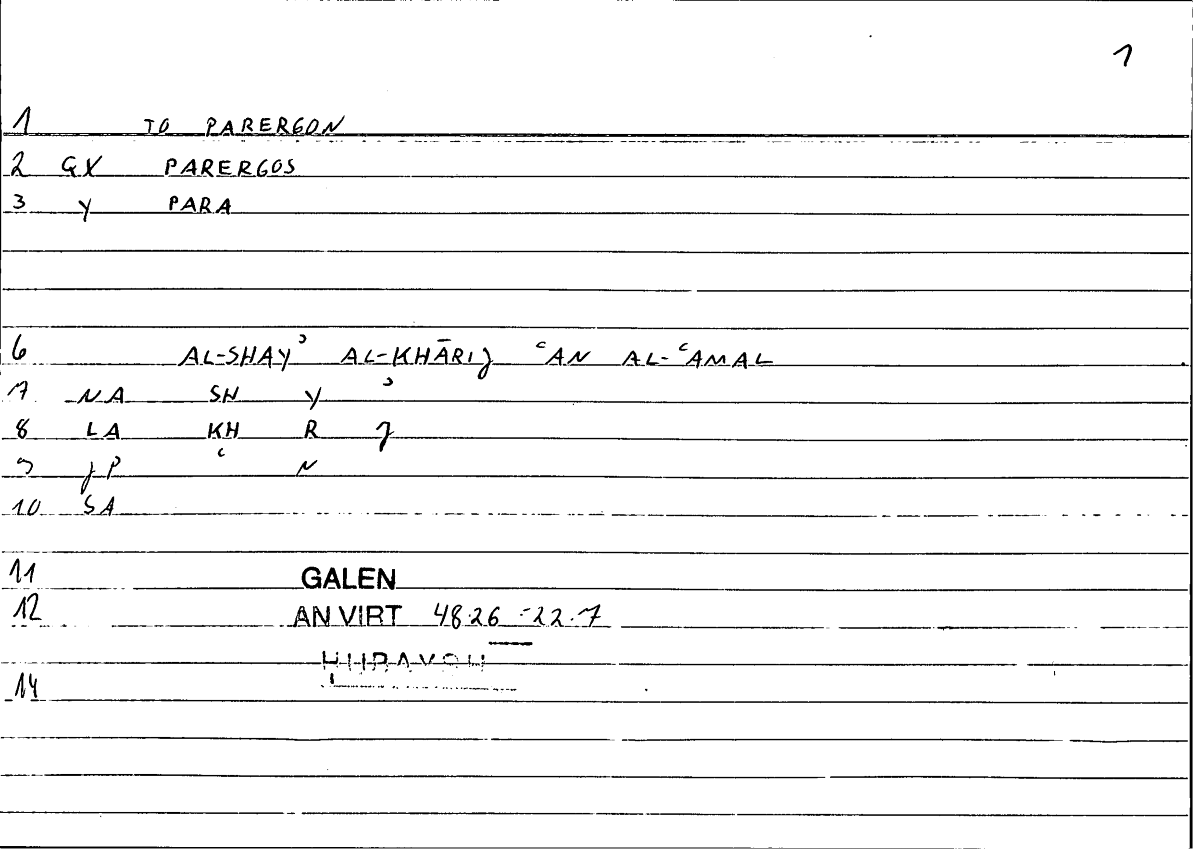 1
1 TO PARERGON
2 GX PARERGOS
3 Y PARA
6 AL-SHAYʾ AL-KHĀRIJ ʿAN AL-ʿAMAL
7 NA SH Y ʾ
8 LA KH R J
9 JP ʿ N
10 SA
11 GALEN
12 AN VIRT 4826-22.7
14